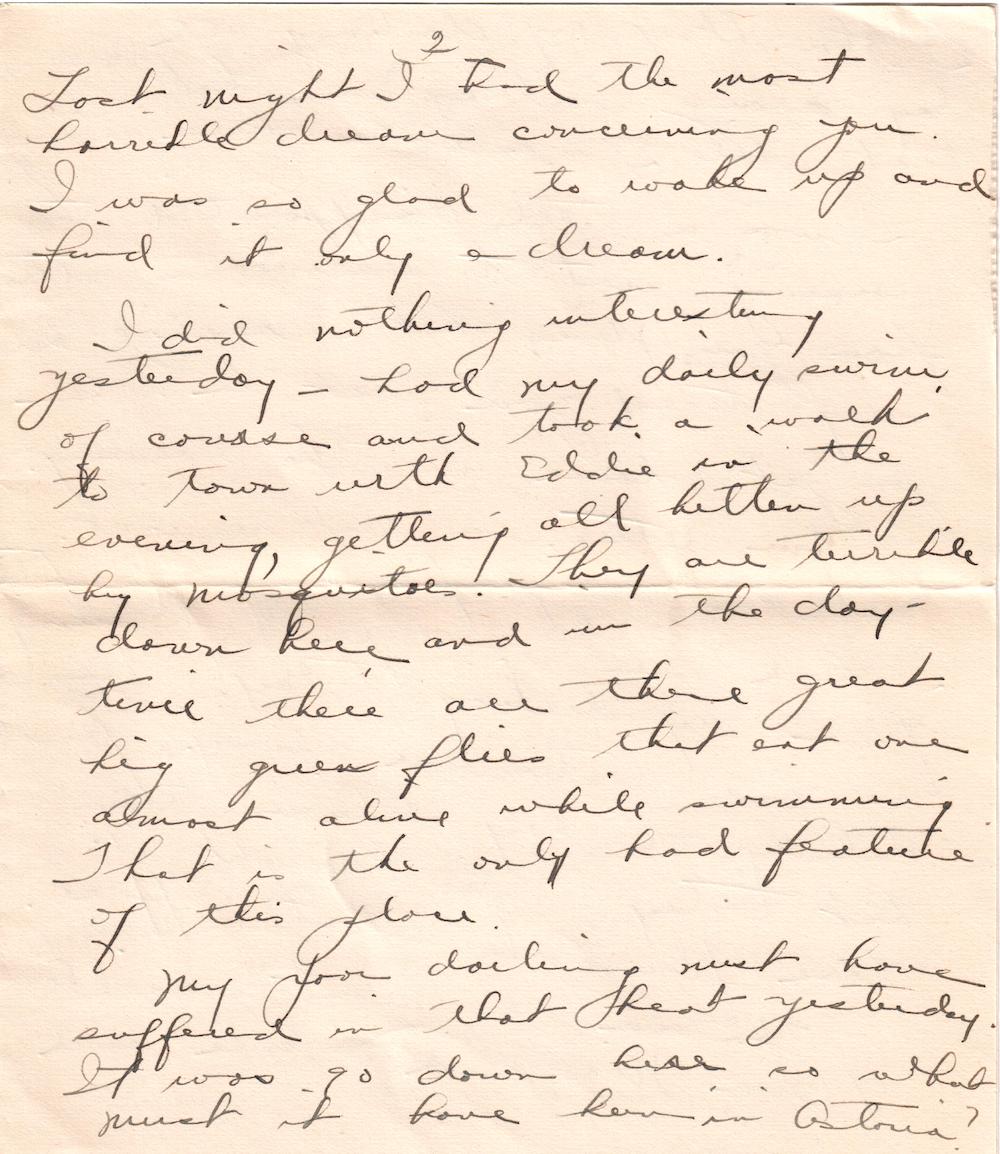 2
Last night I had the most
horrible dream concerning you.
I was so glad to wake up and
find it only a dream.
I did nothing interesting
yesterday - had my daily swim,
of course and took a walk
to town with Eddie in the
evening, getting all bitten up
by mosquitoes! They are terrible
down here and in the day-
time there are these great
big green flies that eat one
almost alive while swimming
That is the only bad feature
of this place.
My poor darling must have
suffered in that heat yesterday.
It was 90 down here so what
must it have been in Astoria?